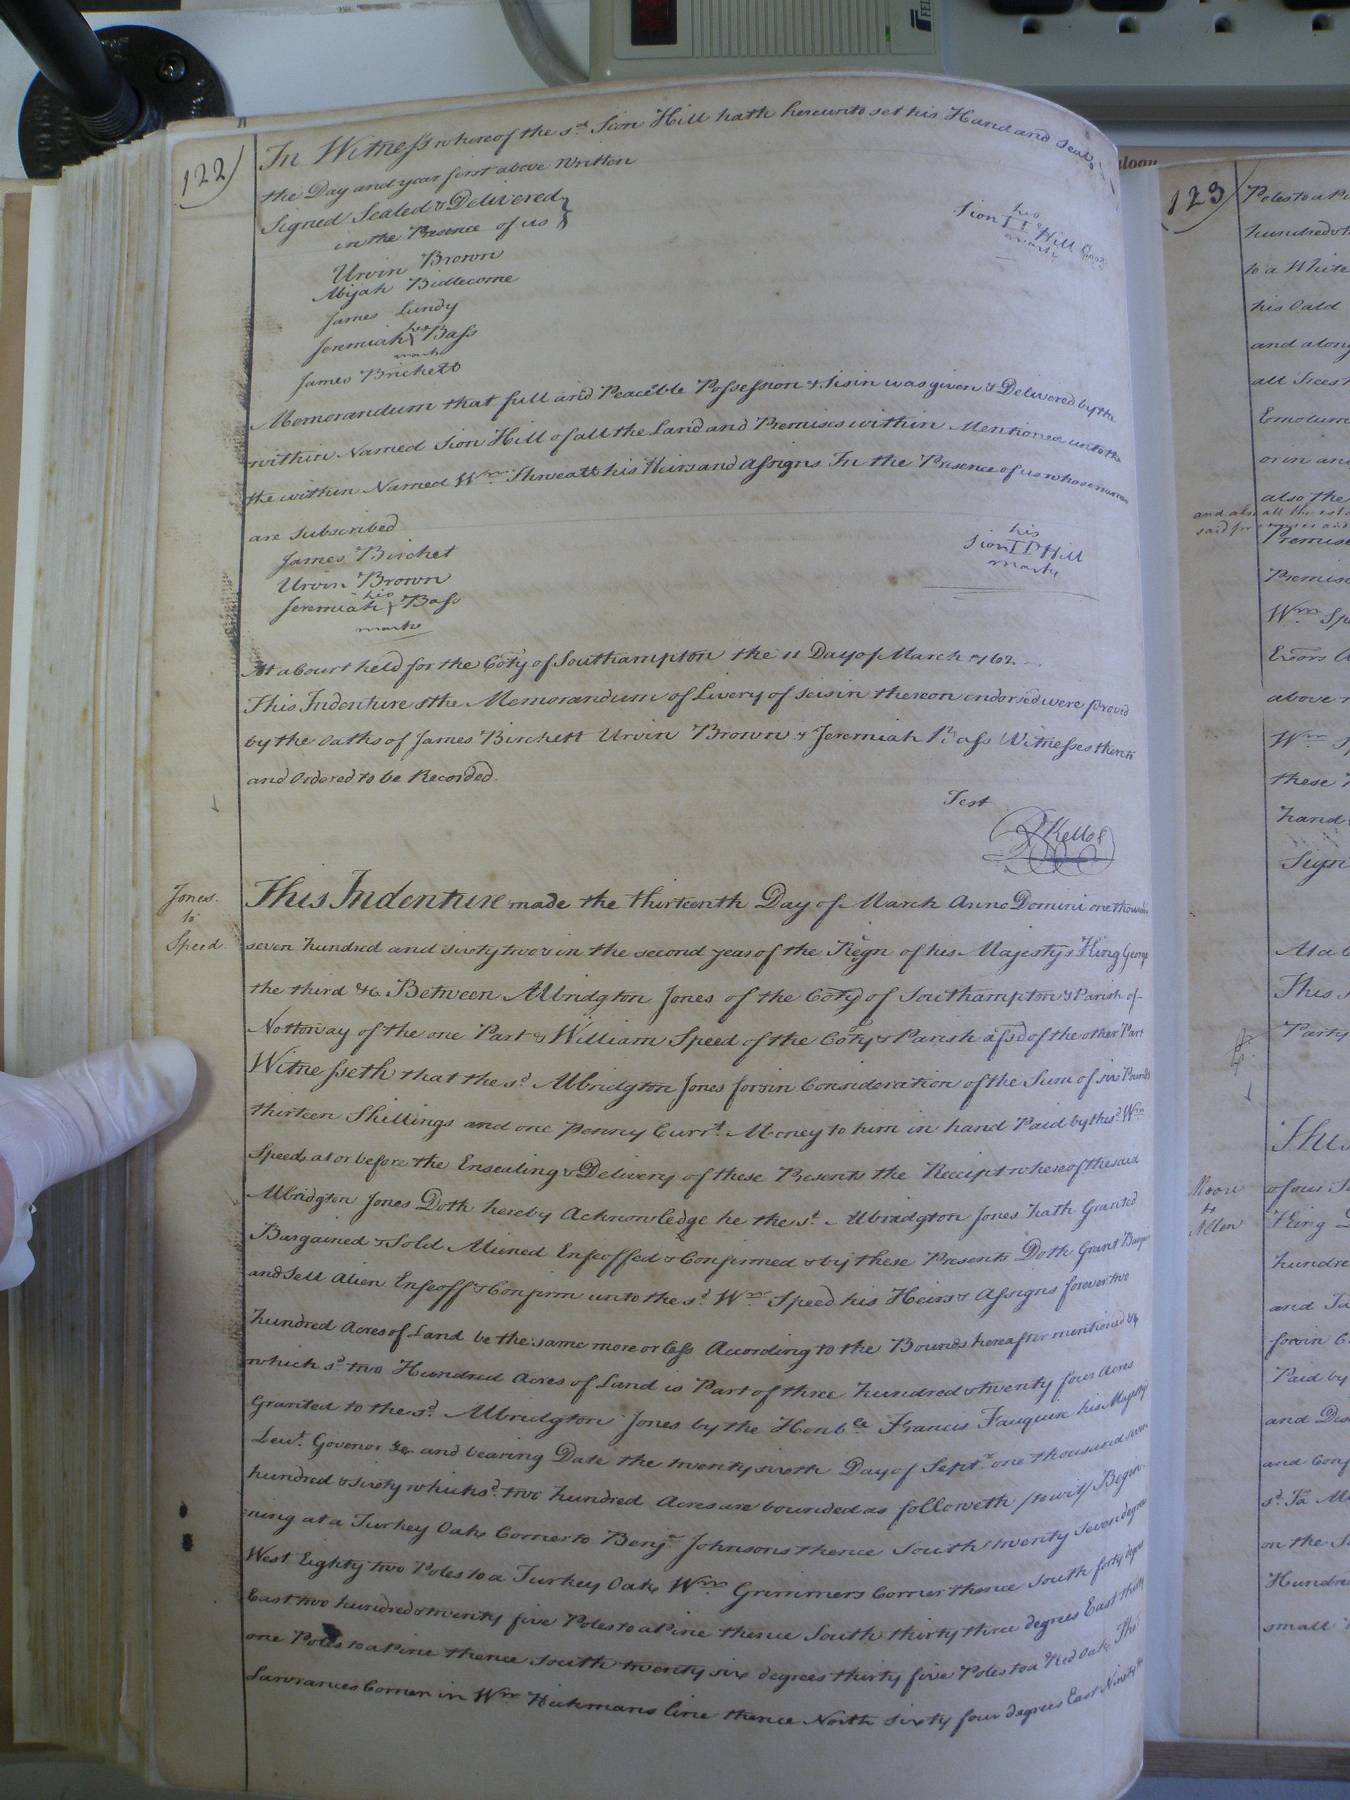 122)
In Witness whereof the sd. Sion Hill hath hereunto set his Hand and Seal
the Day and year first above Written
Signed Sealed & Delivered
in the Presence of us
his
Sion II Hill
mark
Urvin Brown
Abijah Bidlecome
James Lundy
his
Jeremiah Bass
mark
James Brichett
Memorandum that full and Peaceble Possession & Sisin was given & Delivered by the
within Named Sion Hill of all the Land and Premises within Mentioned unto the
the within Named Wm. his Heirs and Assigns In the Presence of us whose names
are Subscribed
James Birchet
his
Sion II Hill
mark
Urvin Brown
his
Jeremiah Bass
mark
At a Court held for the Coty of Southampton the 11 Day of March 1762
This Indenture & the Memorandum of Livery of seisin thereon endorsed were proved
by the Oaths of James Birchett Urvin Brown & Jeremiah Bass Witnesses thereto
and Ordered to be Recorded.
Test
Kello
Jones
to
Speed
This Indenture made the thirteenth Day of March Anno Domini one thousand
seven hundred and sixty two & in the second year of the Reign of his Majesty King George
the third &c. Between Albridgton Jones of the Coty of Southampton & Parish of
Nottoway of the one Part & William Speed of the Coty & Parish afsd of the other Part
Witnesseth that the sd. Albridgton Jones for & in Consideration of the Sum of six Pounds
thirteen Shillings and one Penny Currt. Money to him in hand Paid by the sd. Wm
Speed at or before the Ensealing & Delivery of these Presents the Receipt whereof the said
Albridgton Jones Doth hereby Acknowledge he the sd. Albridgton Jones hath Granted
Bargained & Sold Aliened Enfeoffed & Confirmed & by these Presents Doth Grant
and Sell Alien Enfeoff & Confirm unto the sd. Wm. Speed his Heirs & Assigns forever two
hundred Acres of Land be the same more or less According to the Bounds hereafter mentioned
which sd. two Hundred Acres of Land is Part of three hundred & twenty four Acres
Granted to the sd. Albridgton Jones by the Honble Francis Fauquier his Majestys
Leut. Govenor &c. and bearing Date the twenty sixth Day of Septr. one thousand seven
hundred & sixty which sd. two hundred Acres are bounded as followeth /to wit/ Begin
ning at a Turkey Oak Corner to Benja. Johnsons thence South twenty Seven degrees
West Eighty two Poles to a Turkey Oak Wm. Grimmers Corner thence South forty degrees
East two hundred & twenty five Poles to a Pine thence South thirty three degrees East thirty
one Poles to a Pine thence South twenty six degrees thirty five Poles to a Red Oak
Corner in Wm Hickmans line thence North sixty four degrees East
123)
hundred
to a White
his Oald
and along
or in
also the
Premises
Wm Sp
above
these
hand
Sign
At a
This
Party
Moore
to
Allen
of our
King
hundred
and
for & in
Paid by
and
and Conf
on the
Hundred
small